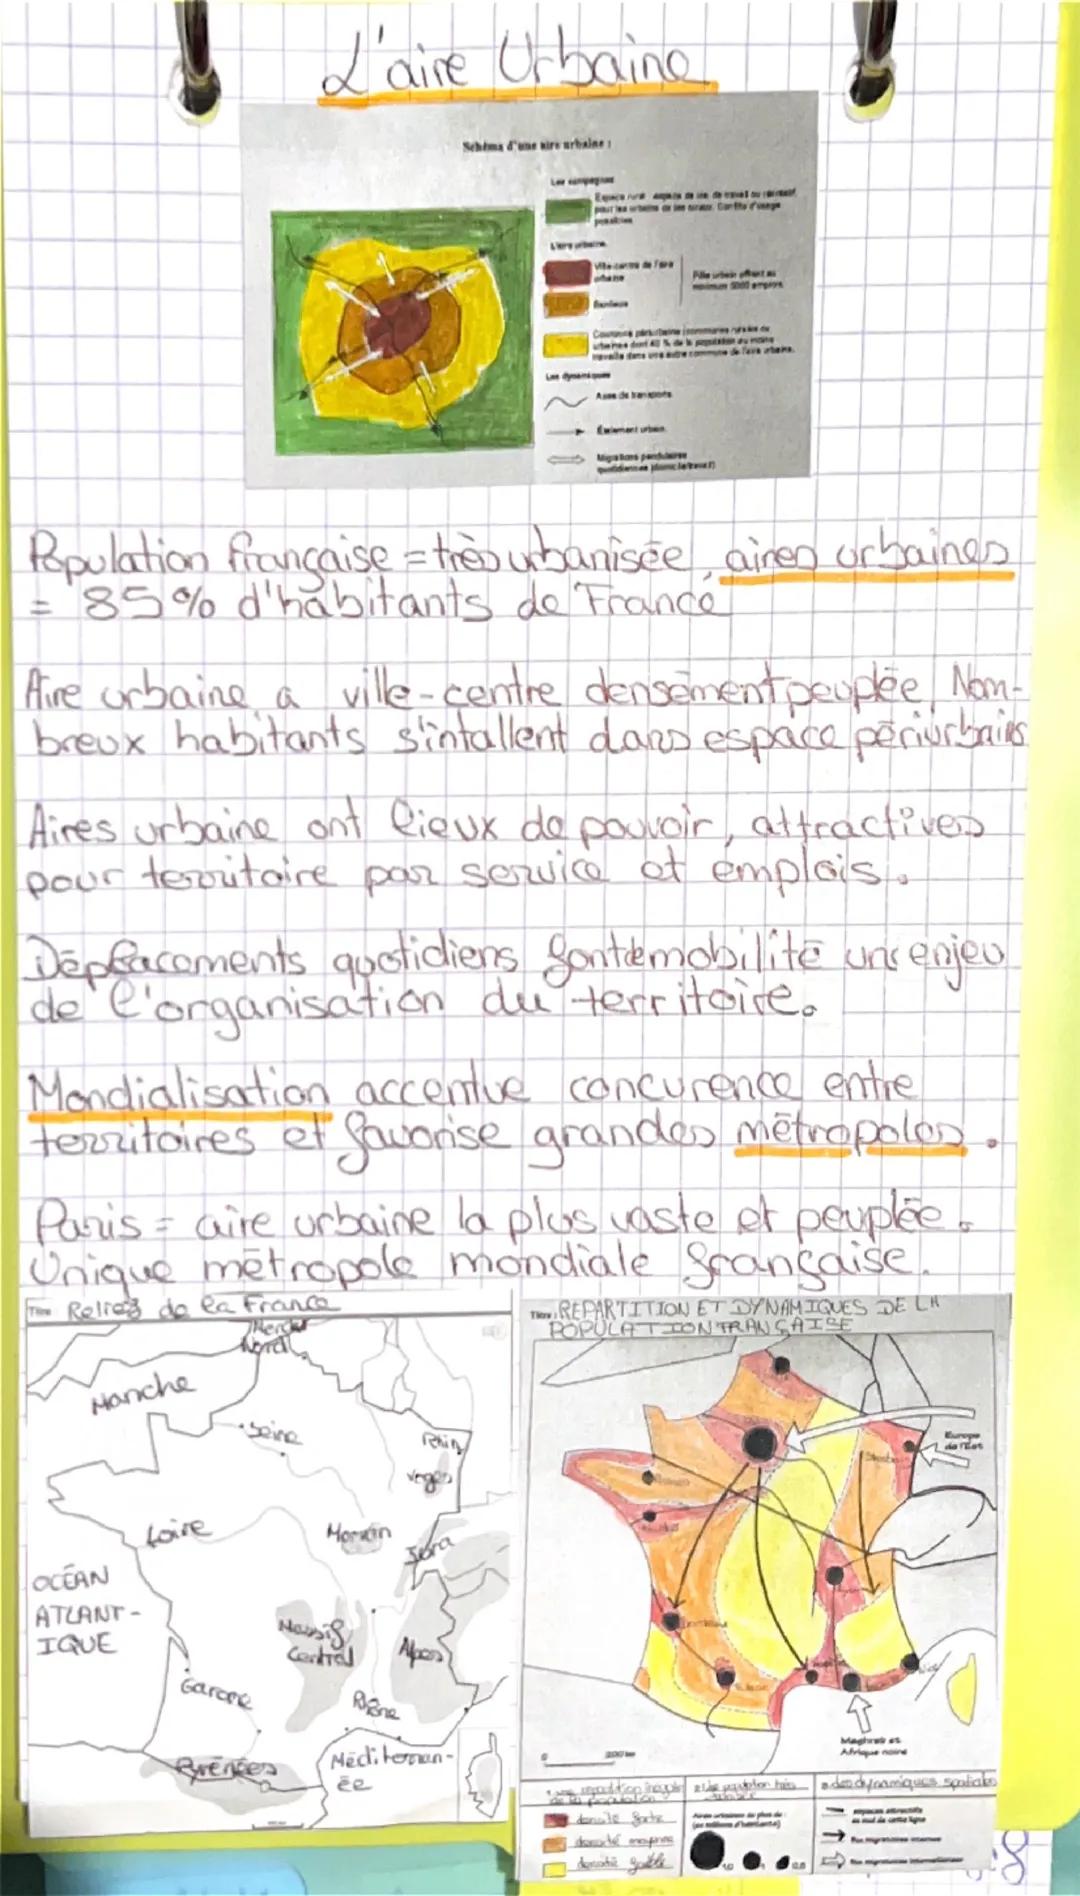 L'aire Urbaine
Schéma d'une aire urbaine :
Les campagnes
Espace rural
L'aire urbaine
Ville-centre de l'aire
urbaine
Pôle urbain offrant au
minimum 5000 emplois
Banlieue
Couronne périurbaine (communes rurales ou
urbaines dont 40 % de la population au moins
travaille dans une autre commune de l'aire urbaine.
Les dynamiques
Axes de transports
Étalement urbain
Migrations pendulaires
quotidiennes (domicile/travail)
Population française = très urbanisée, aires urbaines
= 85% d'habitants de France
Aire urbaine a ville-centre densément peuplée. Nom-
breux habitants s'intallent dans espace périurbains
Aires urbaine ont lieux de pouvoir, attractives
pour territoire par service et emplois.
Déplacements quotidiens font de mobilité un enjeu
de l'organisation du territoire.
Mondialisation accentue concurence entre
territoires et favorise grandes métropoles.
Paris = aire urbaine la plus vaste et peuplée.
Unique métropole mondiale française.
Titre Relief de la France
Mer du
Nord
Manche
Seine
Rhin
Voges
Loire
Morvan
Jura
OCÉAN
ATLANT-
IQUE
Massif
Central
Alpes
Garone
Rhône
Pyrénées
Méditerran-
ée
Titre : REPARTITION ET DYNAMIQUES DE LA
POPULATION FRANÇAISE
Europe
de l'Est
Maghreb et
Afrique noire
0 200 km
1 une repartition inégale
de la population
densité forte
densité moyenne
densité faible
Aires urbaines de plus de :
(en millions d'habitants)
10 1 0,5
des dynamiques spatiales
espaces attractifs
au sud de cette ligne
flux migratoires internes
flux migratoires internationaux